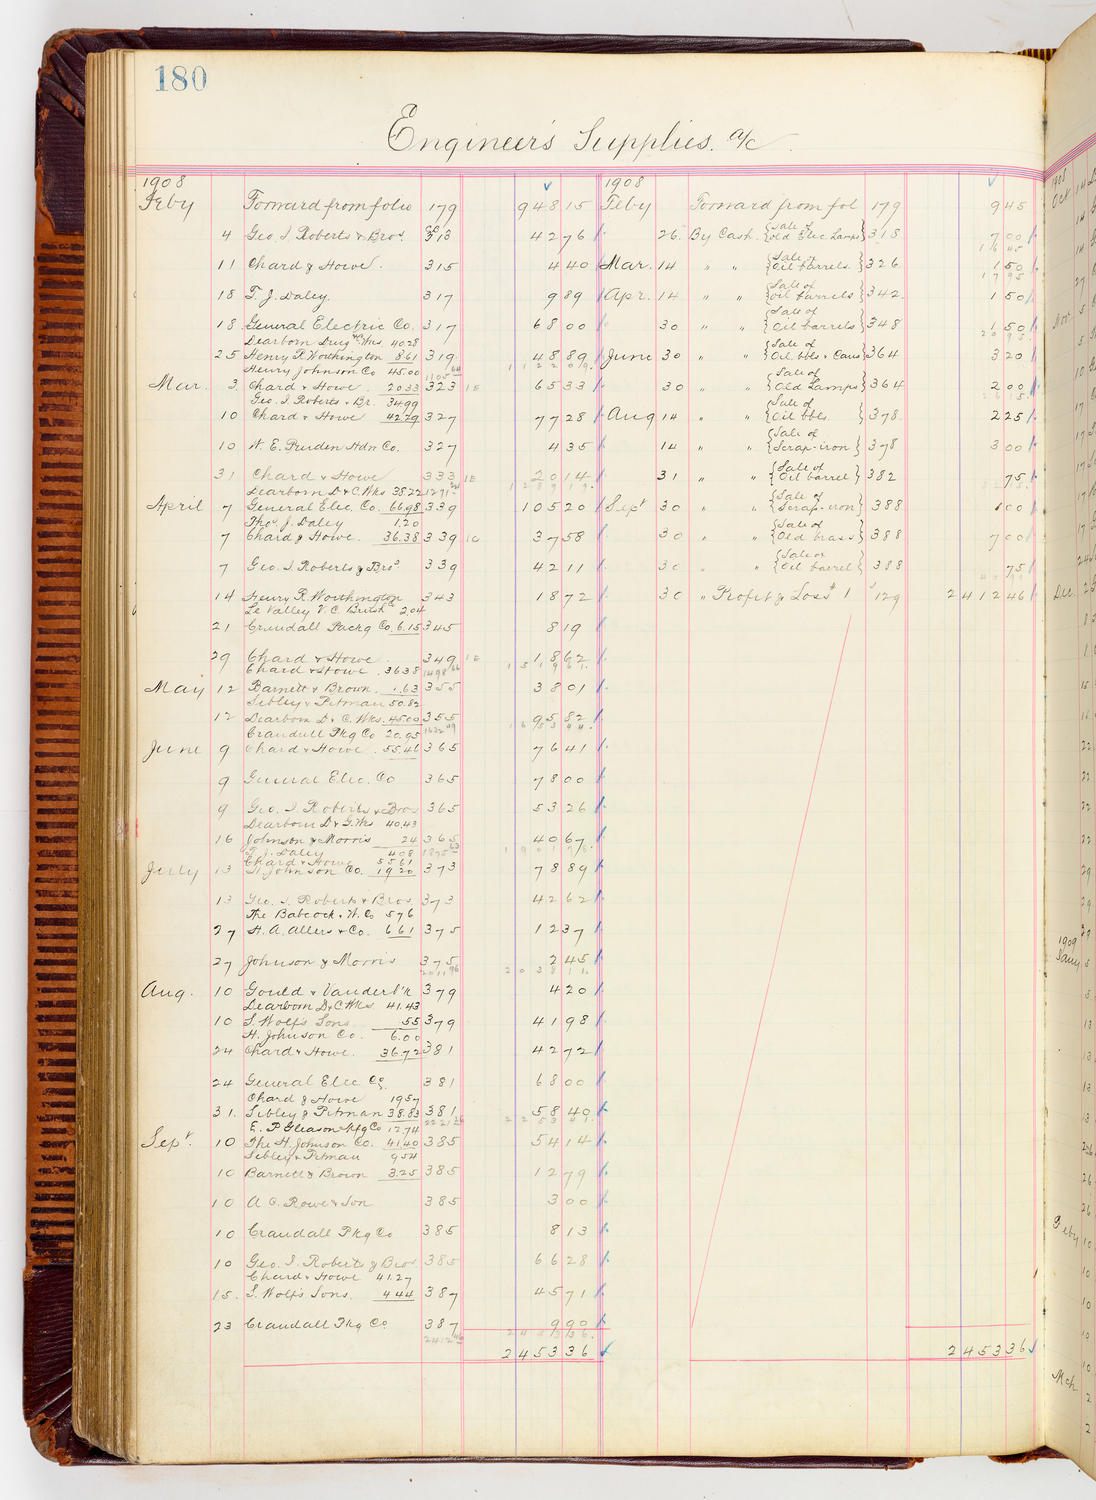 180
Engineer's Supplies. a/c
1908
Feby Forward from folio 179 948 15
4 Geo. I. Roberts & Bros. 313 42 76
11 Chard & Howe. 315 4 40
18 T. J. Daley. 317 9 89
18 General Electric Co. 317 68 00
Dearborn Drug & C. Wks. 40.28
25 Henry R. Worthington 8.61 319 48 89
Henry Johnson Co 45.00
Mar. 3 Chard & Howe. 20.33 323 65 33
Geo. I. Roberts & Br. 34.99
10 Chard & Howe 42.29 327 77 28
10 W. E. Pruden Hdw Co. 327 4 35
31 Chard & Howe 333 20 14
Dearborn D & C. Wks 38.22
April 7 General Elec. Co. 66.98 339 105 20
Thos. J. Daley 1.20
7 Chard & Howe. 36.38 339 37 58
7 Geo. I. Roberts & Bros 339 42 11
14 Henry R. Worthington 343 18 72
Le Valley V. C. Brush Co 2.04
21 Crandall Packg Co. 6.15 345 8 19
29 Chard & Howe. 349 18 62
Chard & Howe 36.38
May 12 Barnett & Brown. 1.63 355 38 01
Sibley & Pitman 50.82
12 Dearborn D. & C. Wks. 45.00 355 95 82
Crandall Pkg Co 20.95
June 9 Chard & Howe. 55.46 365 76 41
9 General Elec. Co 365 78 00
9 Geo. I. Roberts & Bros 365 53 26
Dearborn D & C. Wks 40.43
16 Johnson & Morris 24 365 40 67
T. J. Daley 4.08
Chard & Howe 55.61
July 13 H. Johnson Co. 19.20 373 78 89
13 Geo. I. Roberts & Bros. 373 42 62
The Babcock & W. Co 5.76
27 H. A. Allers & Co. 6.61 375 12 37
27 Johnson & Morris 375 2 45
Aug. 10 Gould & Vanderb'k 379 4 20
Dearborn D & C. Wks. 41.43
10 S. Wolf's Sons .55 379 41 98
H. Johnson Co. 6.00
24 Chard & Howe. 36.72 381 42 72
24 General Elec Co. 381 68 00
Chard & Howe 19.57
31. Sibley & Pitman 38.83 381 58 40
E. P. Gleason Mfg Co 12.74
Sept. 10 The H. Johnson Co. 41.40 385 54 14
Sibley & Pitman 9.54
10 Barnett & Brown 3.25 385 12 79
10 A. C. Rowe & Son 385 3 00
10 Crandall Pkg Co 385 8 13
10 Geo. I. Roberts & Bros. 385 66 28
Chard & Howe 41.27
15. S. Wolf's Sons. 4.44 387 45 71
23 Crandall Pkg Co 387 9 90
2453 36
1908
Feby Forward from fol 179 9 45
26. By Cash. {Sale of Old Elec Lamps} 318 7 00
Mar. 14 " " {Sale of Oil barrels.} 326 1 50
Apr. 14 " " {Sale of Oil barrels} 342. 1 50
30 " " {Sale of Oil barrels} 348 1 50
June 30 " " {Sale of Oil bbls & Cans} 364 3 20
30 " " {Sale of Old Lamps} 364 2 00
Aug 14 " " {Sale of Oil bbls.} 378. 2 25
14 " " {Sale of Scrap-iron} 378 3 00
31 " " {Sale of Oil barrel} 382 75
Sept 30 " " {Sale of Scrap-iron} 388 1 00
30 " " {Sale of Old brass} 388 7 00
30 " " {Sale of Oil barrel} 388 75
30 " Profit & Loss 129 2412 46
2453 36
1908
Oct
Nov
Dec.
1909
Jany
Feby
Mch